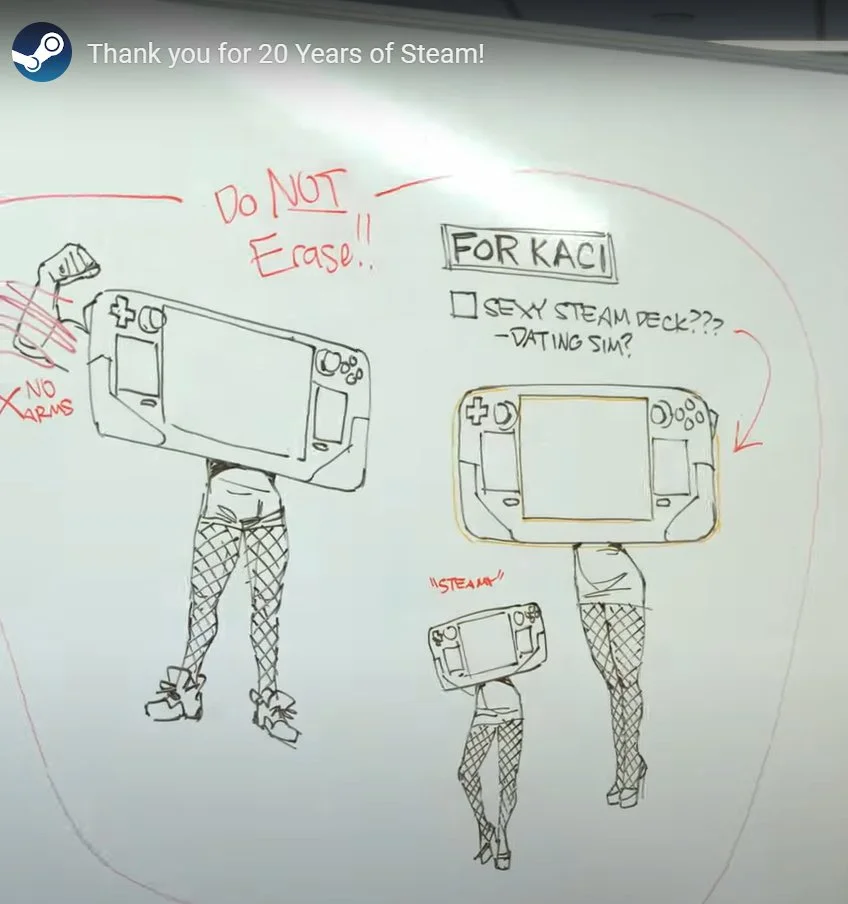 Thank you for 20 Years of Steam!
Do NOT
Erase!!
FOR KACI
SEXY STEAM DECK???
-DATING SIM?
X NO
ARMS
"STEAMY"